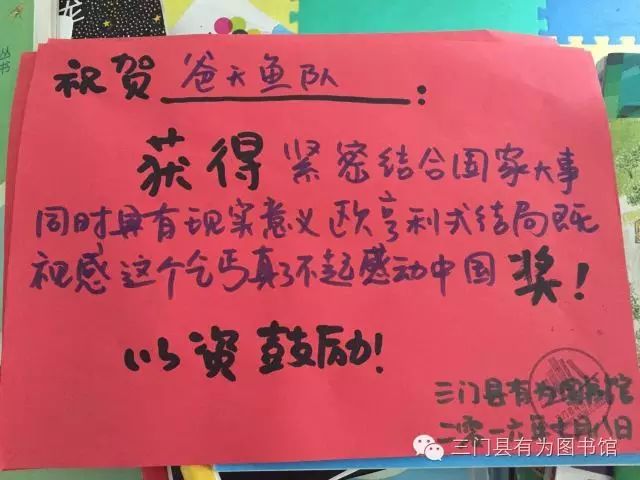 龙
丛书
祝贺 爸天鱼队:
获得 紧密结合国家大事
同时具有现实意义欧亨利式结局既
视感这个乞丐真了不起感动中国 奖!
以资鼓励!
三门县有为图书馆
二零一六年七月八日
三门县有为图书馆